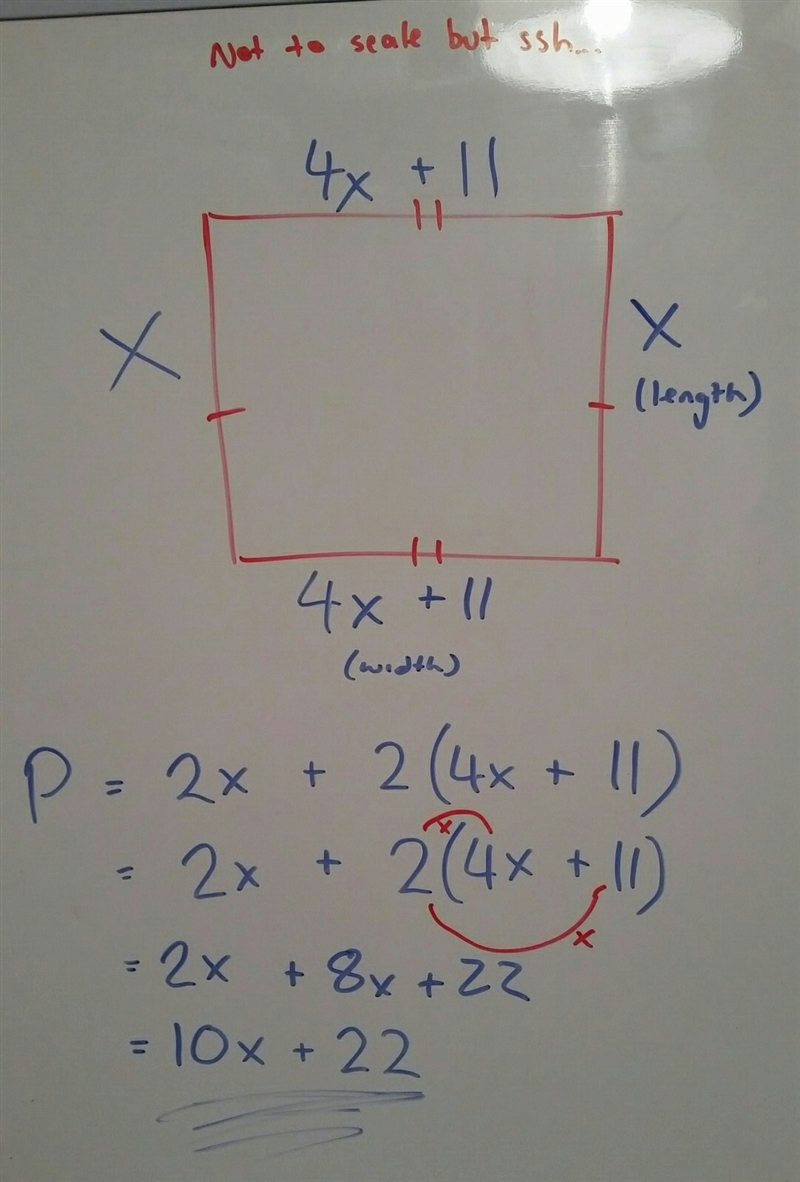 Not to scale but ssh...
4x + 11
x
x
(length)
4x + 11
(width)
P = 2x + 2(4x + 11)
= 2x + 2(4x + 11)
x
x
= 2x + 8x + 22
= 10x + 22